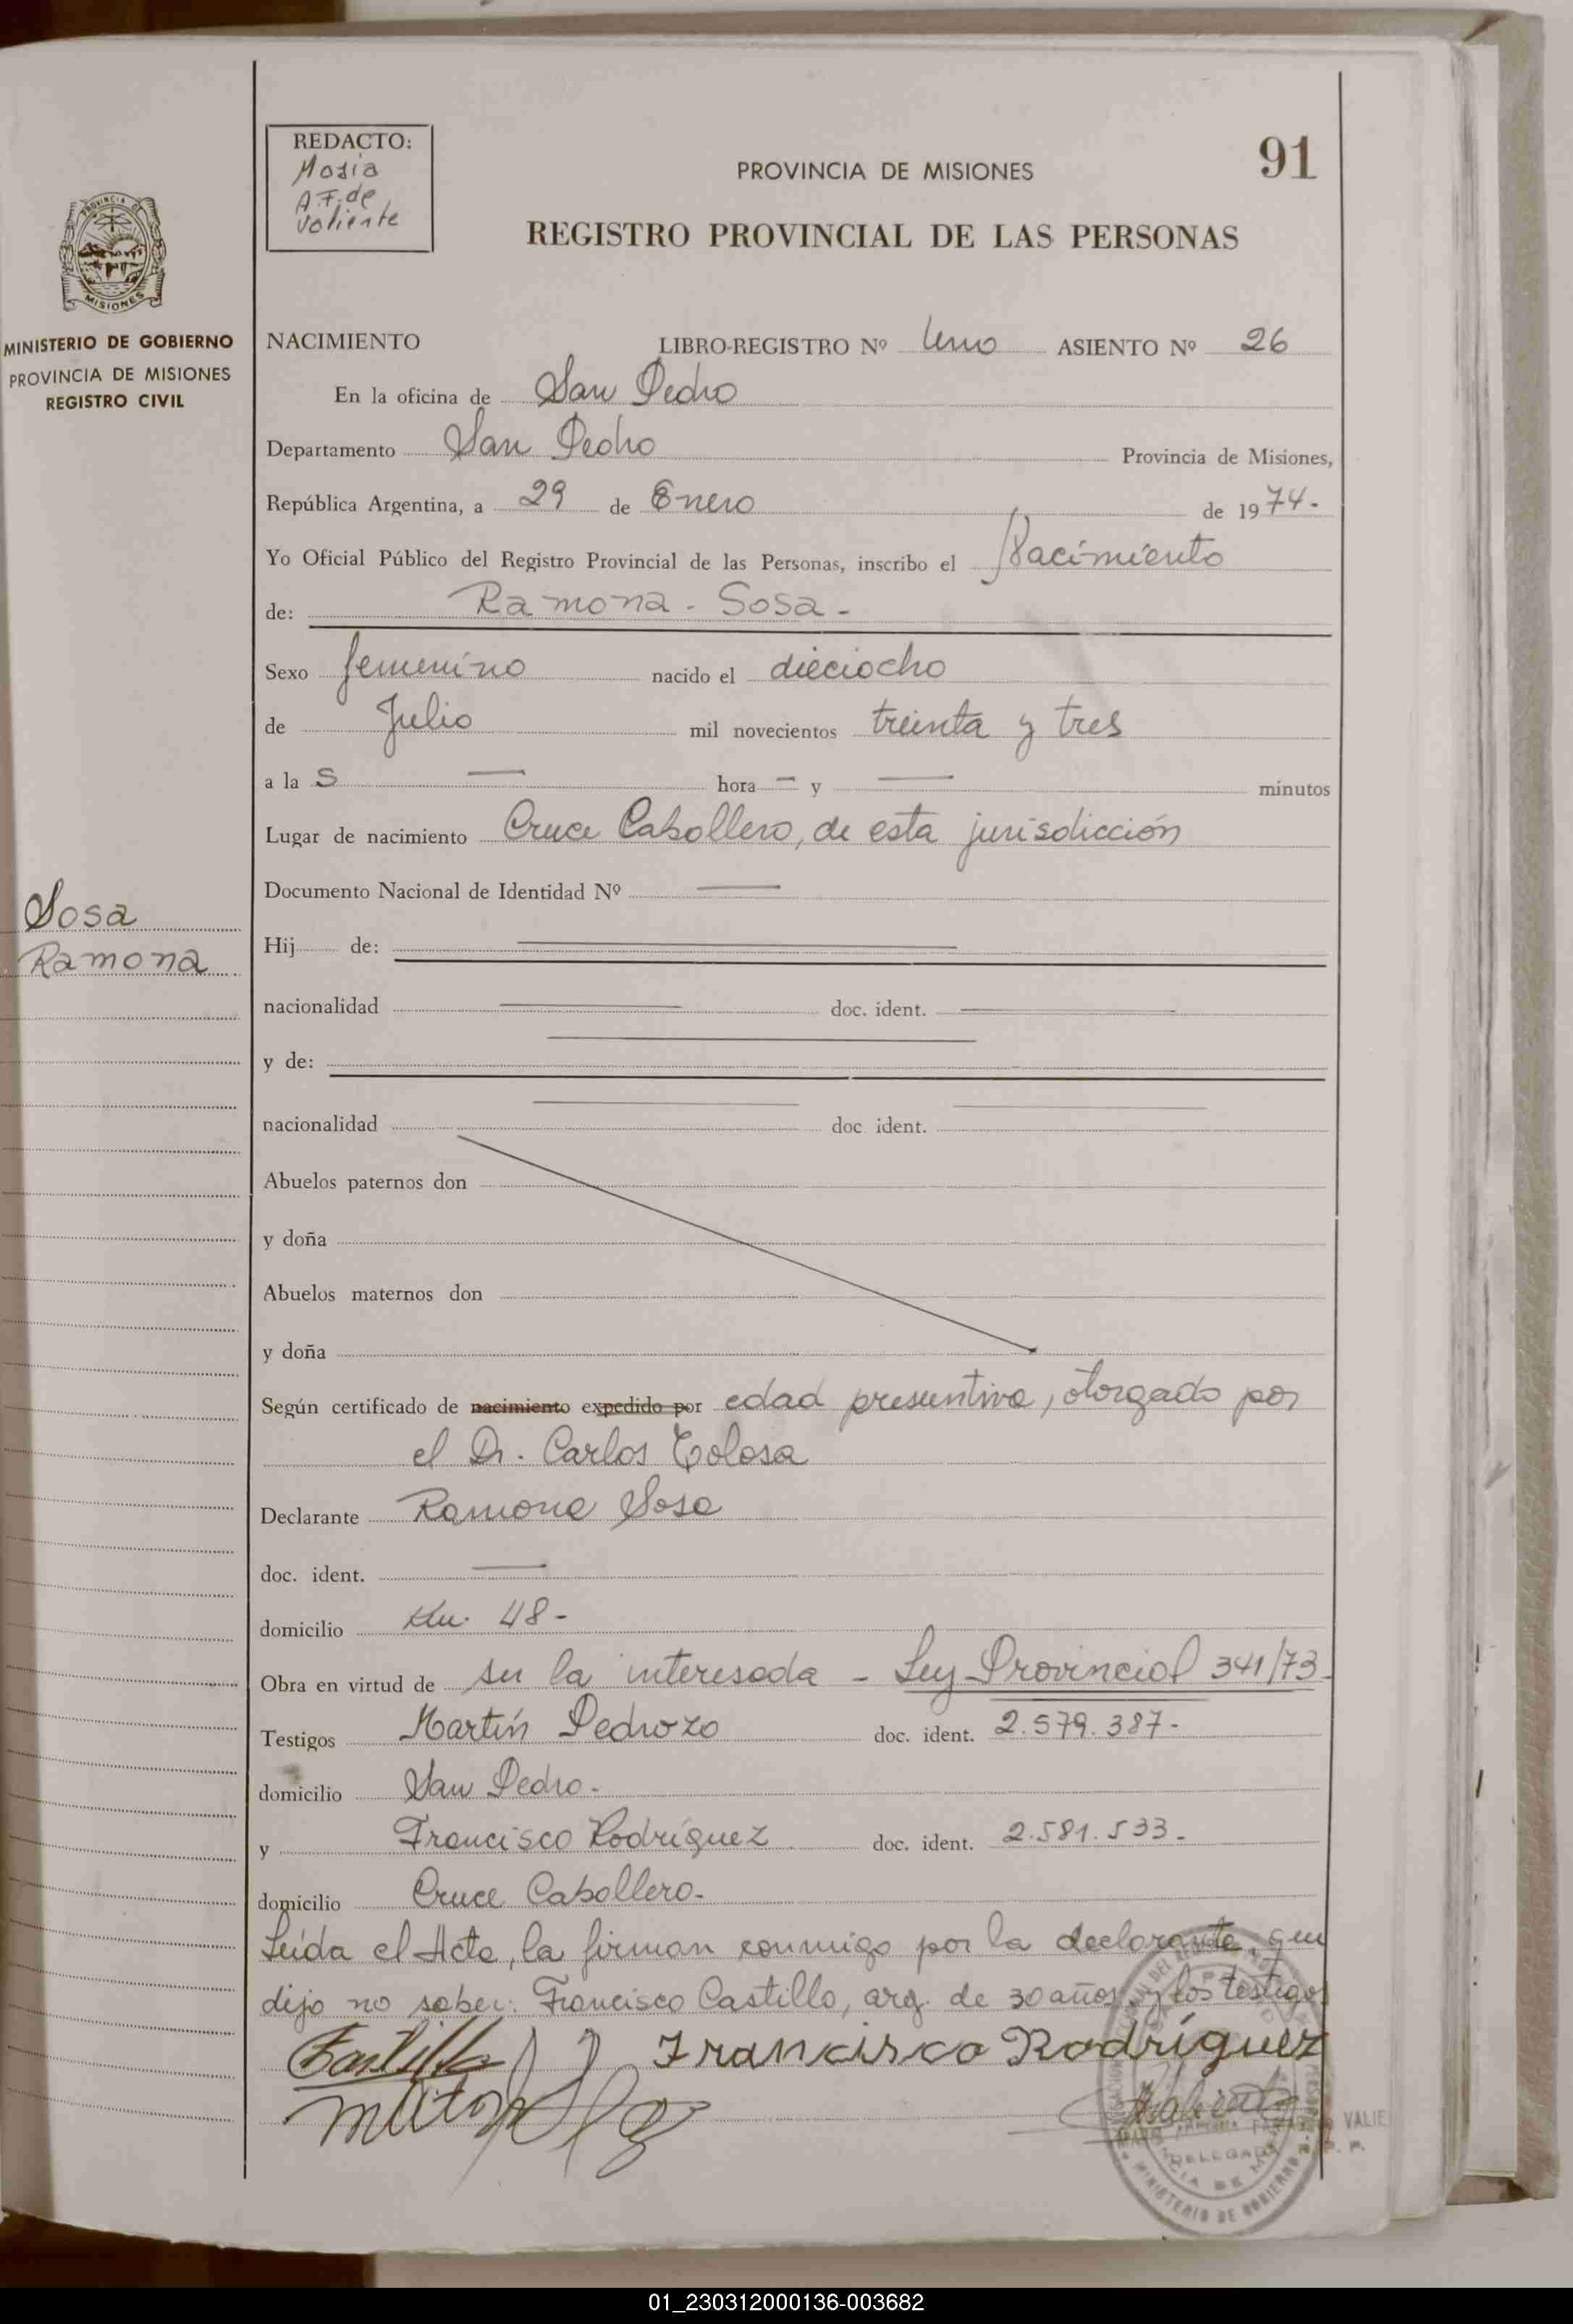 REDACTO:
María
A.F. de
Valiente
PROVINCIA DE MISIONES
91
REGISTRO PROVINCIAL DE LAS PERSONAS
PROVINCIA DE
MISIONES
MINISTERIO DE GOBIERNO
PROVINCIA DE MISIONES
REGISTRO CIVIL
NACIMIENTO LIBRO-REGISTRO Nº Uno ASIENTO Nº 26
En la oficina de San Pedro
Departamento San Pedro Provincia de Misiones,
República Argentina, a 29 de Enero de 1974.-
Yo Oficial Público del Registro Provincial de las Personas, inscribo el Nacimiento
de: Ramona - Sosa -
Sexo femenino nacido el dieciocho
de Julio mil novecientos treinta y tres
a la s — hora — y — minutos
Lugar de nacimiento Cruce Caballero, de esta jurisdicción
Documento Nacional de Identidad Nº —
Sosa
Ramona
Hij de: —
nacionalidad — doc. ident. —
y de: —
nacionalidad — doc. ident. —
Abuelos paternos don
y doña
Abuelos maternos don
y doña
Según certificado de nacimiento expedido por edad presuntiva, otorgado por
el Dr. Carlos Tolosa
Declarante Ramona Sosa
doc. ident. —
domicilio Km. 48 -
Obra en virtud de ser la interesada - Ley Provincial 341/73.
Testigos Martín Pedrozo doc. ident. 2.579.387-
domicilio San Pedro.
y Francisco Rodríguez doc. ident. 2.581.533.
domicilio Cruce Caballero.
Leída el Acta, la firman conmigo por la declarante, que
dijo no saber: Francisco Castillo, arg. de 30 años, y los testigos
Castillo Francisco Rodríguez
DELEGADA
MINISTERIO DE GOBIERNO
01_230312000136-003682